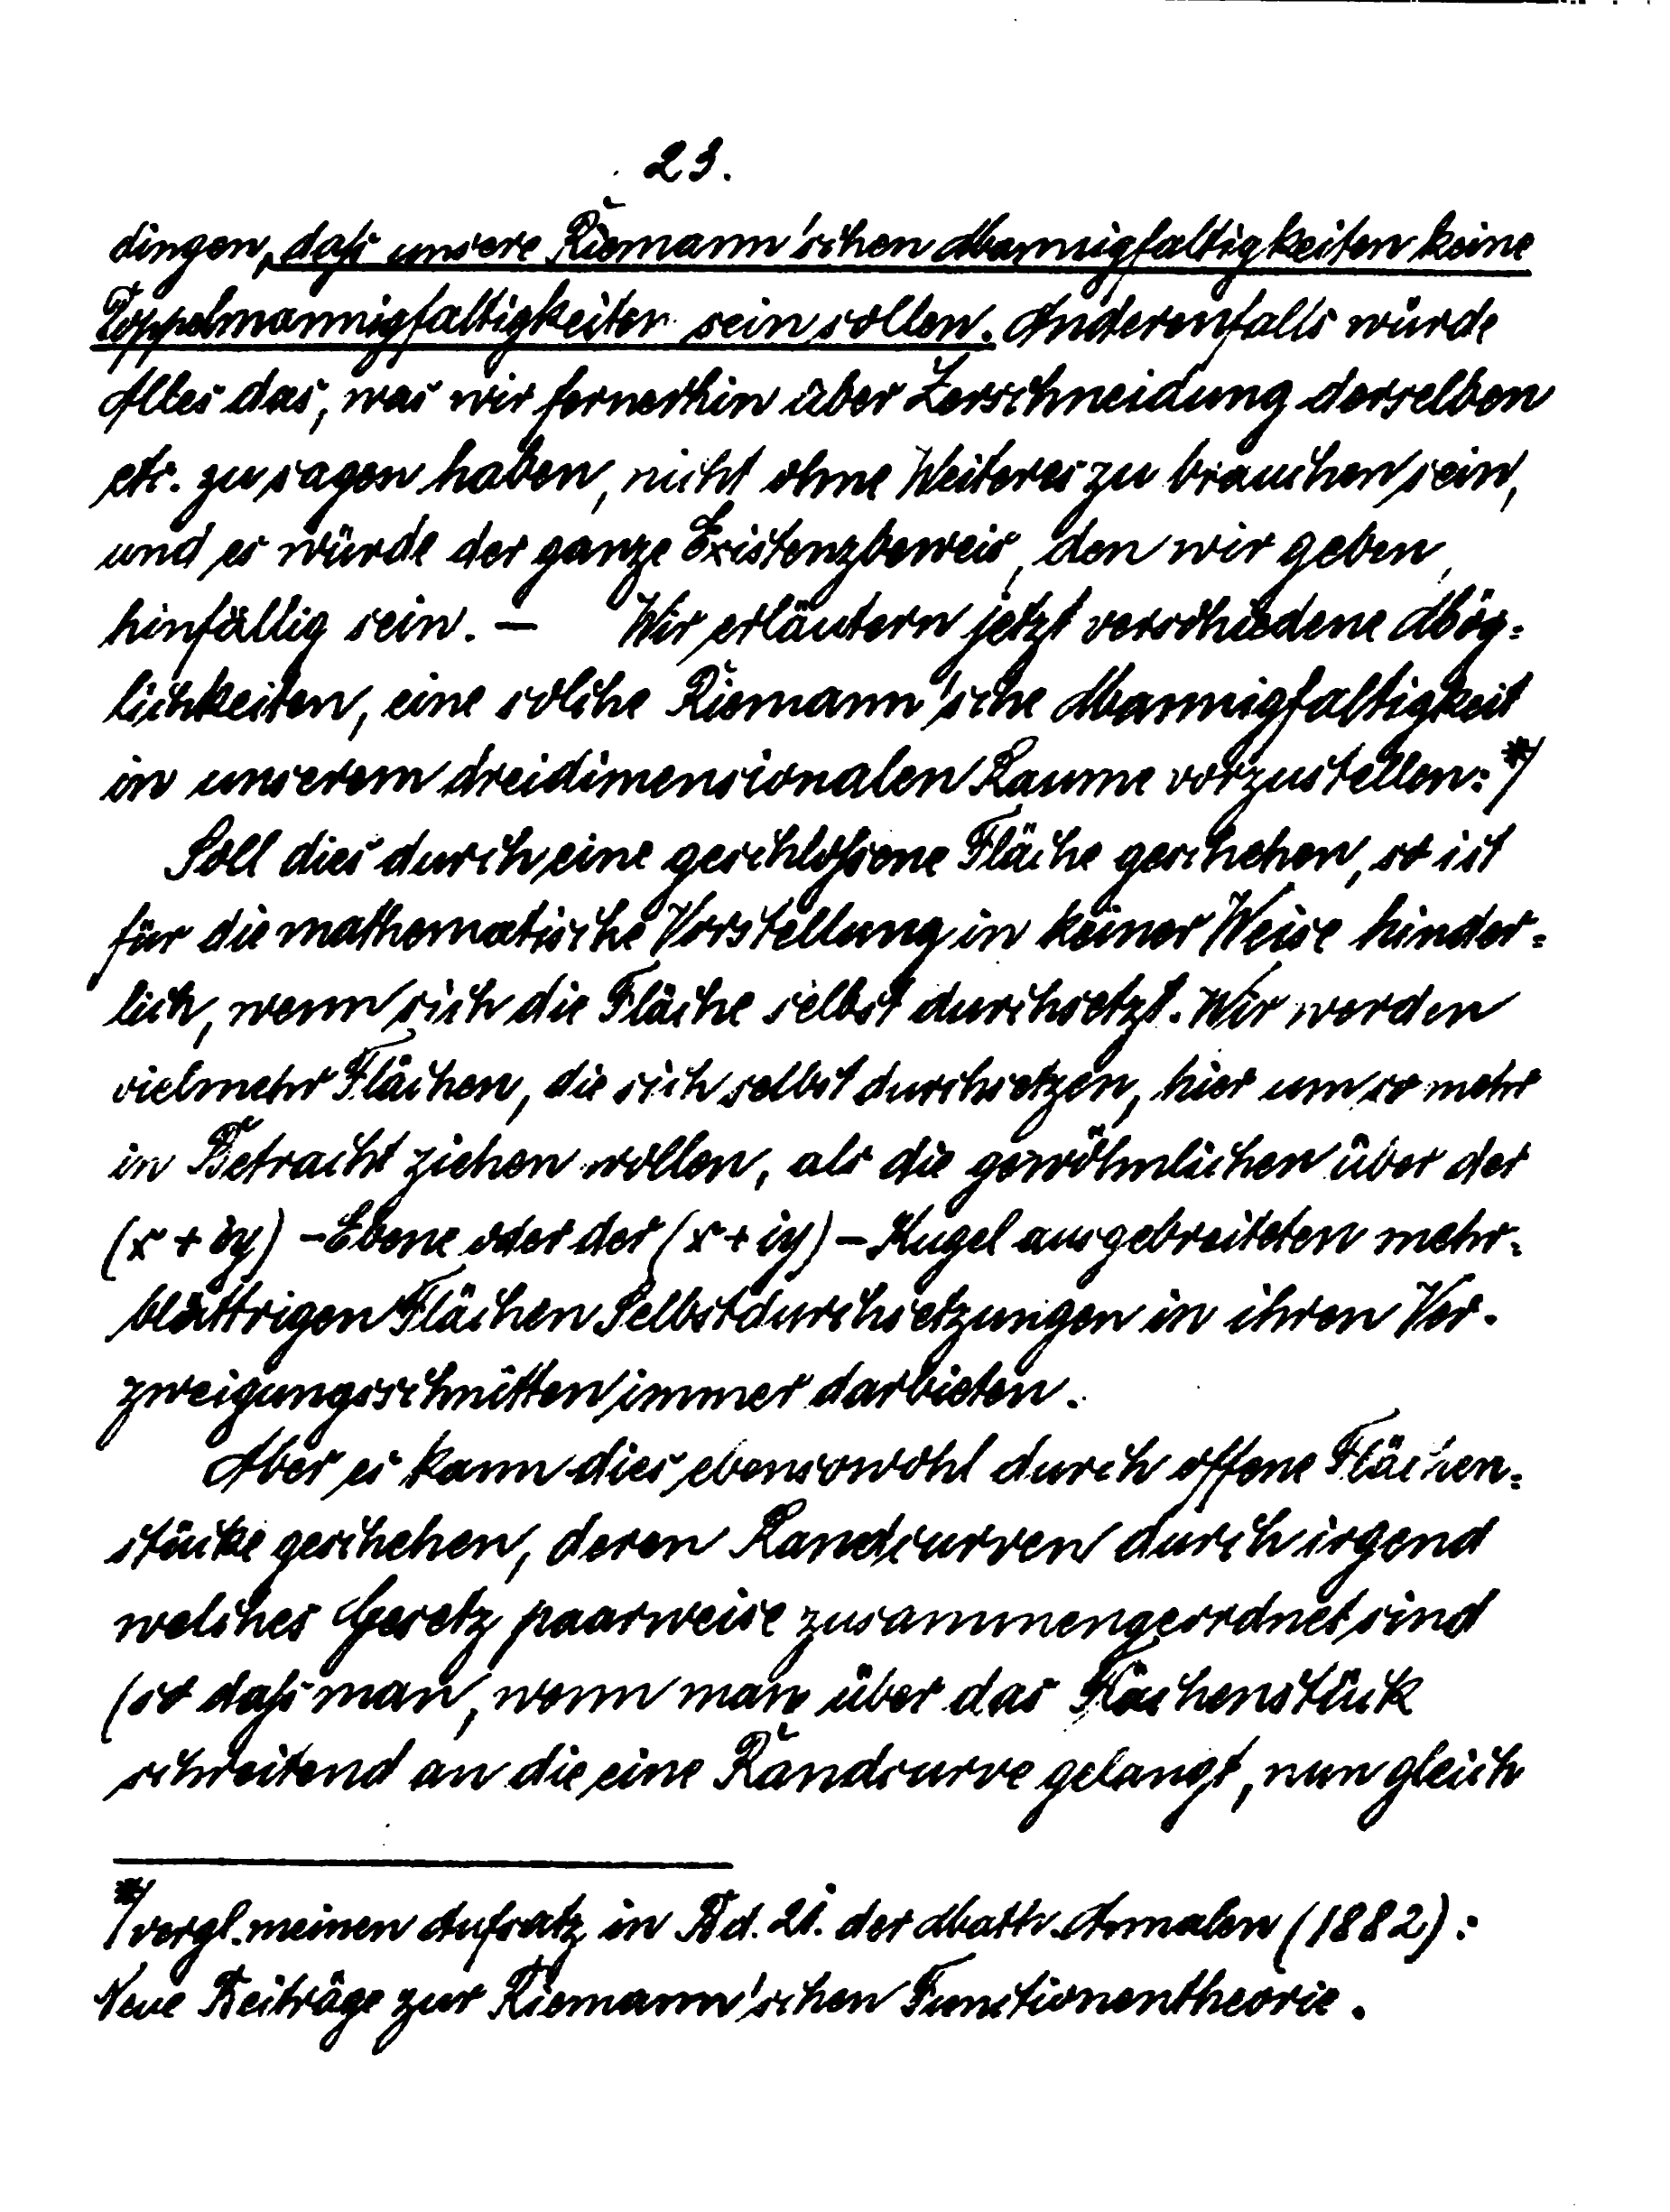 23.
dingen, daß unsere Riemann'schen Mannigfaltigkeiten keine
Doppelmannigfaltigkeiten sein sollen. Anderenfalls würde
Alles das, was wir fernerhin über Zerschneidung derselben
etc. zu sagen haben, nicht ohne Weiteres zu brauchen sein,
und es würde der ganze Existenzbeweis, den wir geben,
hinfällig sein. — Wir erläutern jetzt verschiedene Mög=
lichkeiten, eine solche Riemann'sche Mannigfaltigkeit
in unserem dreidimensionalen Raume vorzustellen:*)
Soll dies durch eine geschloßene Fläche geschehen, so ist
für die mathematische Vorstellung in keiner Weise hinder=
lich, wenn sich die Fläche selbst durchsetzt. Wir werden
vielmehr Flächen, die sich selbst durchsetzen, hier um so mehr
in Betracht ziehen wollen, als die gewöhnlichen über der
(x + iy) - Ebene oder der (x + iy) - Kugel ausgebreiteten mehr=
blättrigen Flächen Selbstdurchsetzungen in ihren Ver-
zweigungsschnitten immer darbieten.
Aber es kann dies ebensowohl durch offene Flächen=
stücke geschehen, deren Randcurven durch irgend
welches Gesetz paarweise zusammengeordnet sind
(so daß man, wenn man über das Flächenstück
schreitend an die eine Randcurve gelangt, nun gleich
*) vergl. meinen Aufsatz in Bd. 21. der Math. Annalen (1882):
Neue Beiträge zur Riemann'schen Functionentheorie.